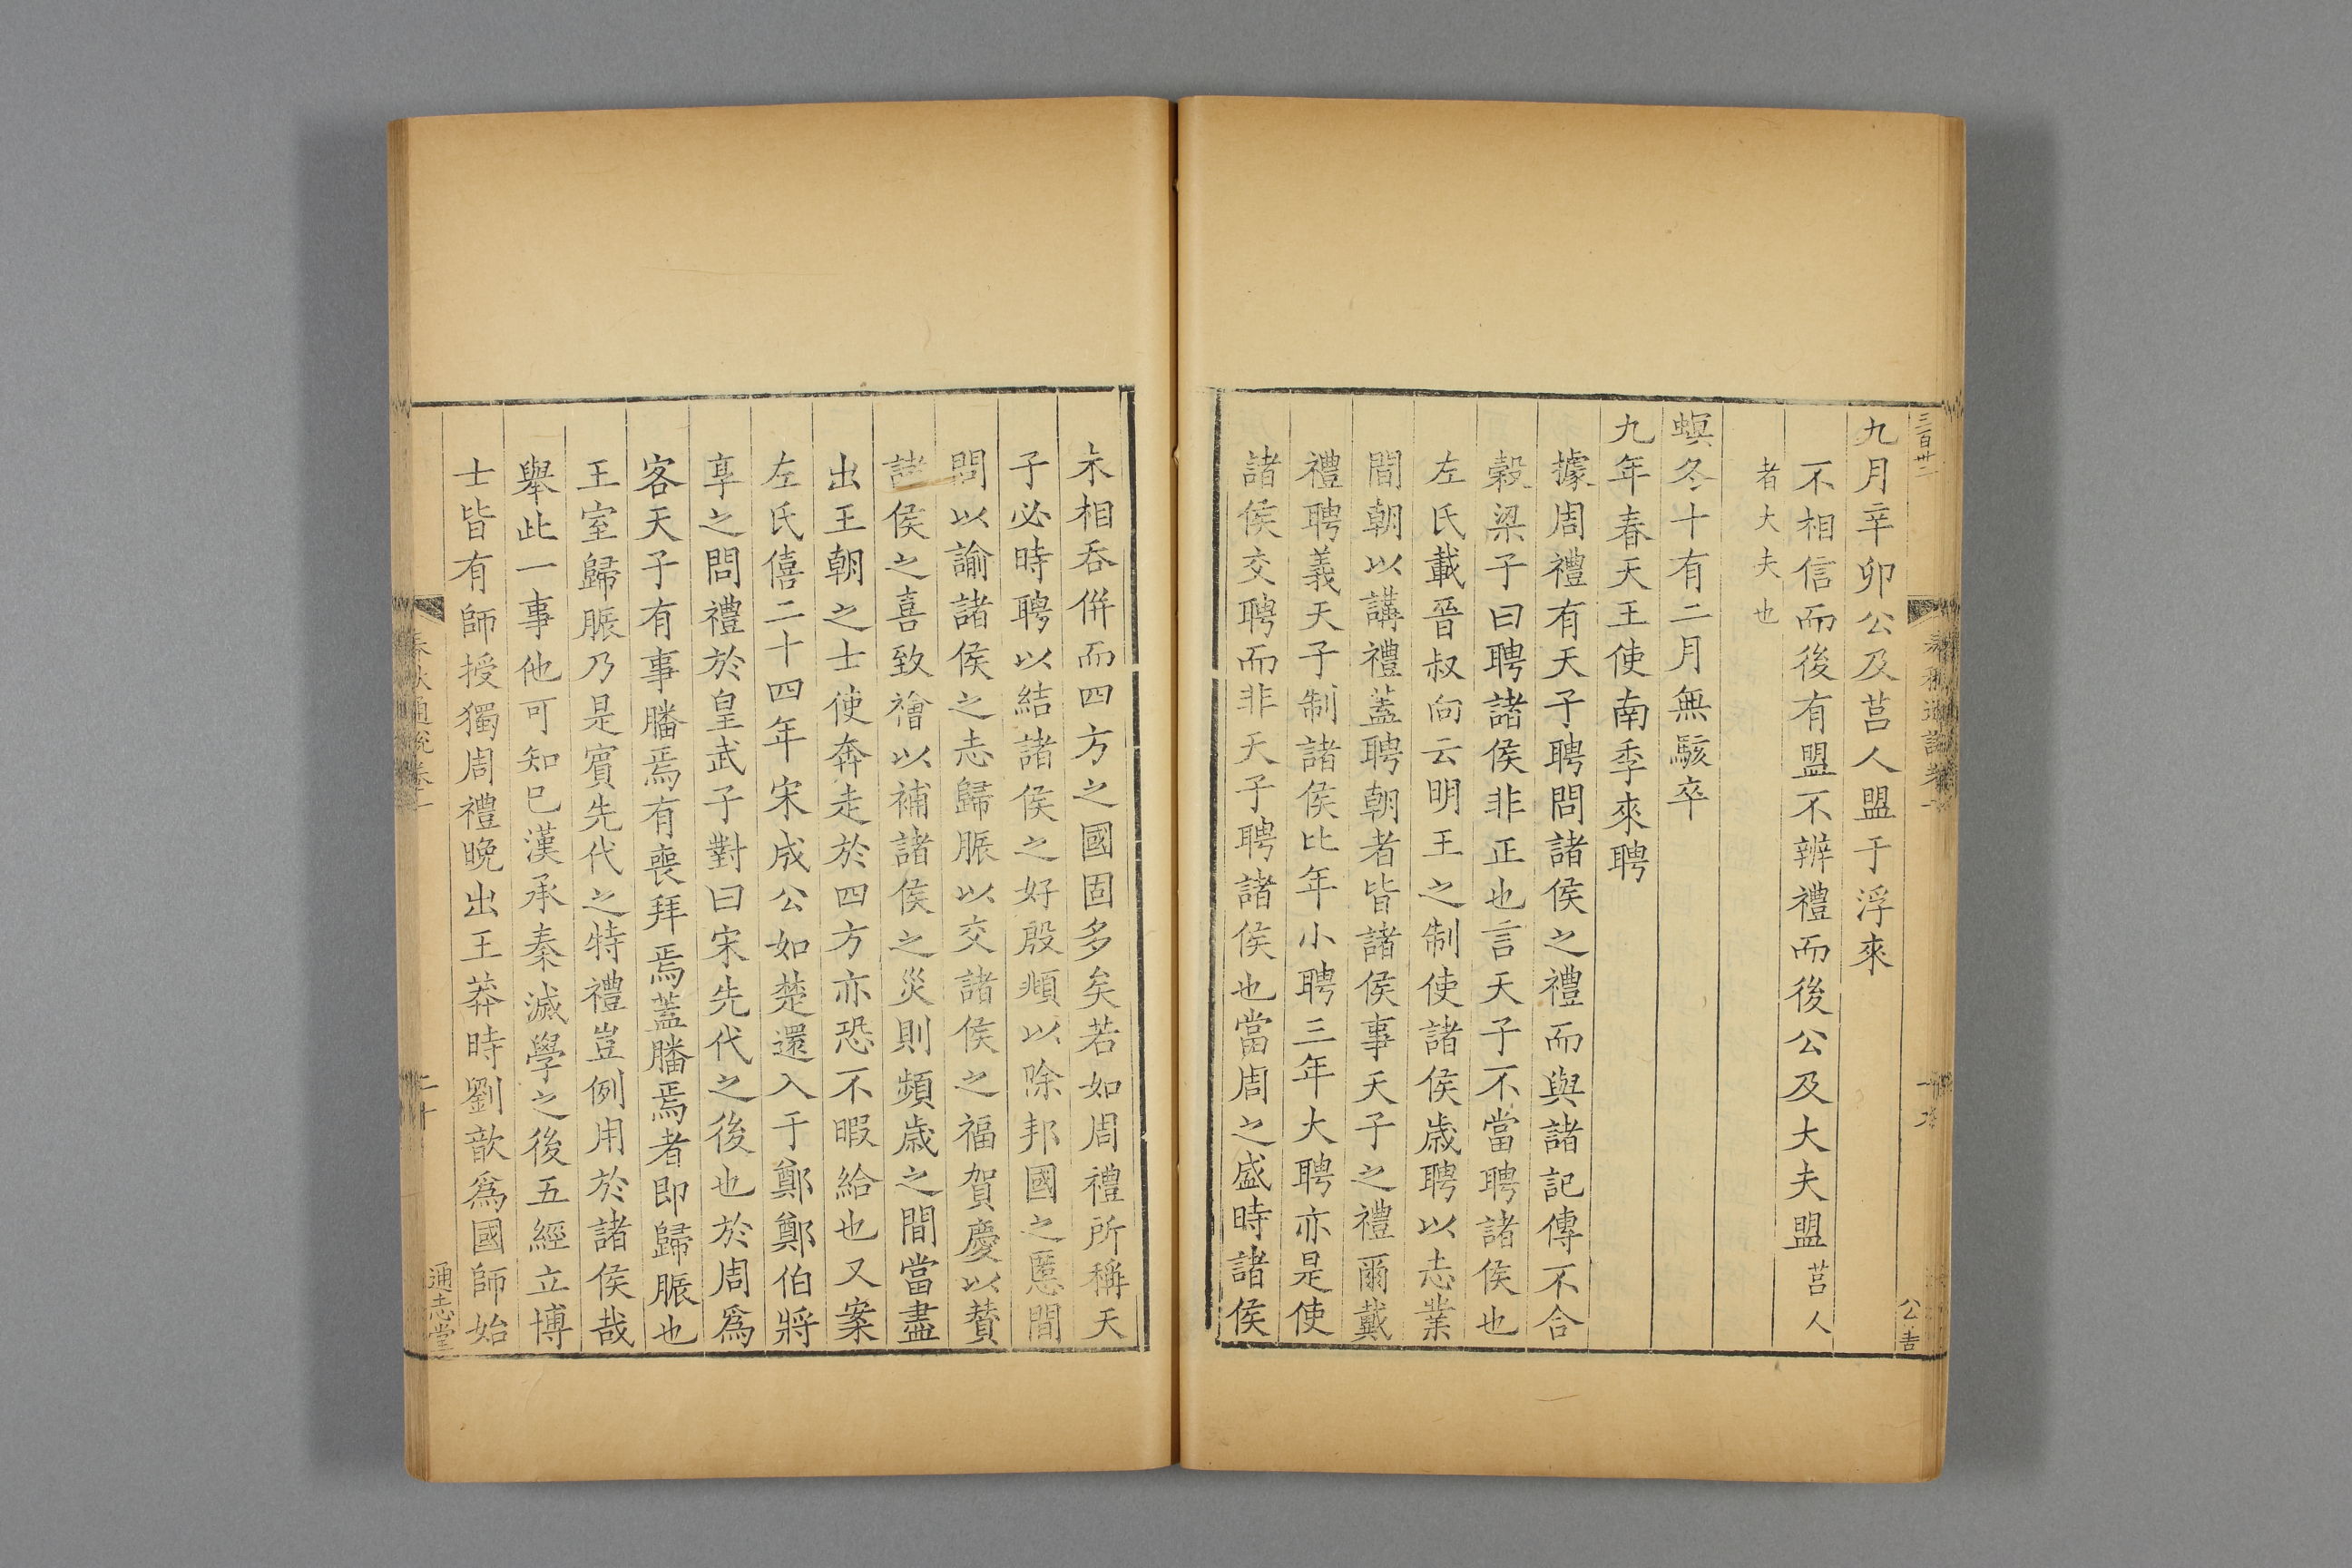 三百卅二
春秋通說卷一
十九
九月辛卯公及莒人盟于浮來
不相信而後有盟不辨禮而後公及大夫盟莒人
者大夫也
螟冬十有二月無駭卒
九年春天王使南季來聘
據周禮有天子聘問諸侯之禮而與諸記傳不合
穀梁子曰聘諸侯非正也言天子不當聘諸侯也
左氏載晉叔向云明王之制使諸侯歲聘以志業
間朝以講禮蓋聘朝者皆諸侯事天子之禮爾戴
禮聘義天子制諸侯比年小聘三年大聘亦是使
諸侯交聘而非天子聘諸侯也當周之盛時諸侯
未相吞併而四方之國固多矣若如周禮所稱天
子必時聘以結諸侯之好殷頫以除邦國之慝間
問以諭諸侯之志歸脤以交諸侯之福賀慶以贊
諸侯之喜致禬以補諸侯之災則頻歲之間當盡
出王朝之士使奔走於四方亦恐不暇給也又案
左氏僖二十四年宋成公如楚還入于鄭鄭伯將
享之問禮於皇武子對曰宋先代之後也於周爲
客天子有事膰焉有喪拜焉蓋膰焉者即歸脤也
王室歸脤乃是賓先代之特禮豈例用於諸侯哉
舉此一事他可知已漢承秦滅學之後五經立博
士皆有師授獨周禮晚出王莽時劉歆爲國師始
春秋通說卷一
二十
通志堂